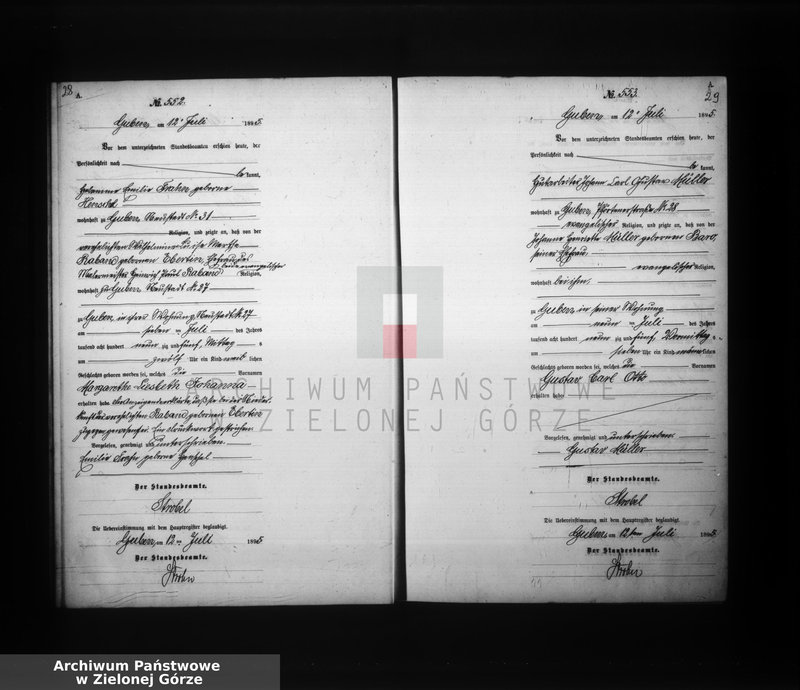 28
A.
№ 552.
Guben am 12. Juli 1895.
Vor dem unterzeichneten Standesbeamten erschien heute, der
Persönlichkeit nach
be kannt,
Hebamme Emilie Frahn geborene
wohnhaft zu Guben Neustadt № 31
Religion, und zeigte an, daß von der
verehelichten Wilhelmine Louise Martha
Raband geborenen Ebert Ehefrau des
Malermeisters Heinrich Paul Raband
beide evangelischer Religion,
wohnhaft zu Guben Neustadt № 27
zu Guben in ihrer Wohnung Neustadt № 27
am sieben ten Juli des Jahres
tausend acht hundert neun zig und fünf, Mittag s
um zwölf Uhr ein Kind weib lichen
Geschlechts geboren worden sei, welches die Vornamen
Margarethe Johanna
erhalten habe. Die Anzeigende erklärte, daß sie bei der Nieder-
kunft der verehelichten Raband geborenen Ebert
zugegen gewesen sei. Ein Druckwort gestrichen
Vorgelesen, genehmigt und unterschrieben
Emilie Frahn geborne
Der Standesbeamte.
Strobel
Die Uebereinstimmung mit dem Hauptregister beglaubigt.
Guben, am 12ten Juli 1895
Der Standesbeamte.
A
29
№ 553.
Guben am 12. Juli 1895.
Vor dem unterzeichneten Standesbeamten erschien heute, der
Persönlichkeit nach
be kannt,
Hutarbeiter Johann Carl Gustav Müller
wohnhaft zu Guben, Pförtnerstraße № 28
evangelischer Religion, und zeigte an, daß von der
Johanne Henriette Müller geborenen
seiner Ehefrau
evangelischer Religion,
wohnhaft bei ihm
zu Guben in seiner Wohnung
am neun ten Juli des Jahres
tausend acht hundert neun zig und fünf, Vormittag s,
um sieben Uhr ein Kind männ lichen
Geschlechts geboren worden sei, welches die Vornamen
Gustav Carl Otto
erhalten habe
Vorgelesen, genehmigt und unterschrieben
Gustav Müller
Der Standesbeamte.
Strobel
Die Uebereinstimmung mit dem Hauptregister beglaubigt.
Guben, am 12ten Juli 1895
Der Standesbeamte.
ARCHIWUM PAŃSTWOWE
W ZIELONEJ GÓRZE
Archiwum Państwowe
w Zielonej Górze